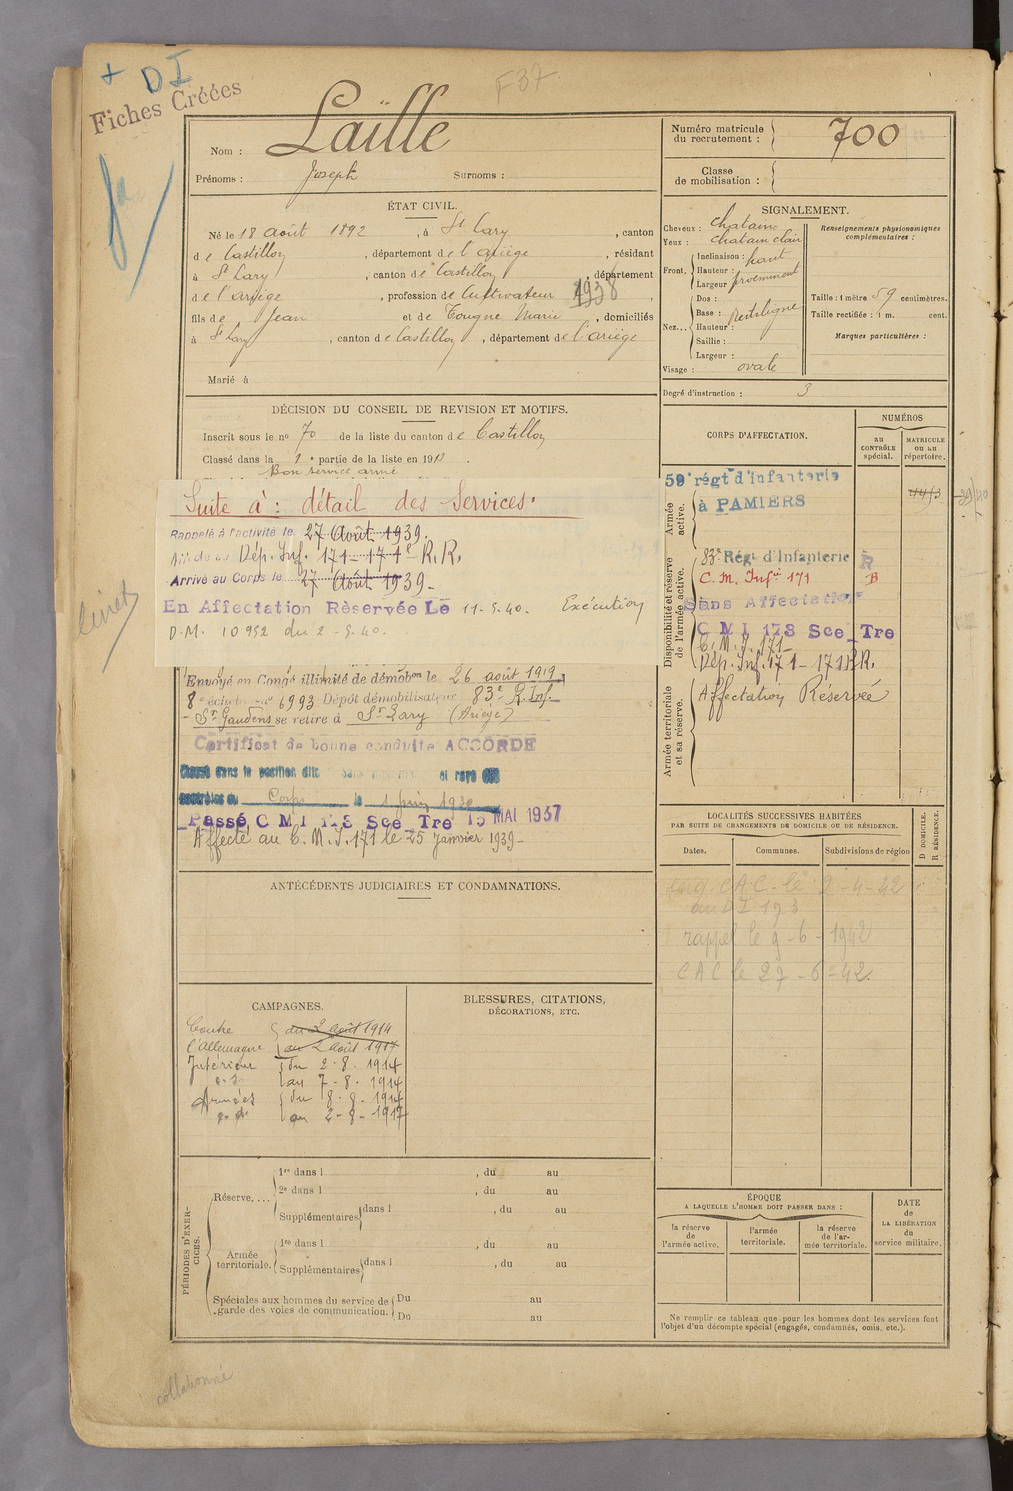 + DI
Fiches Créées
F 37
Nom : Laïlle
Prénoms : Joseph Surnoms :
Numéro matricule du recrutement : 700
Classe de mobilisation :
ÉTAT CIVIL.
Né le 18 août 1892, à St Lary, canton
de Castillon, département de l'ariège, résidant
à St Lary, canton de Castillon, département
de l'ariège, profession de Cultivateur 1938,
fils de Jean et de Tougne Marie, domiciliés
à St Lary, canton de Castillon, département de l'ariège
Marié à
SIGNALEMENT.
Cheveux : chatains
Yeux : chatain clair
Front. Inclinaison : haut
Hauteur :
Largeur : proeminent
Nez... Dos :
Base : Rectiligne
Hauteur :
Saillie :
Largeur :
Visage : ovale
Renseignements physionomiques complémentaires :
Taille : 1 mètre 59 centimètres.
Taille rectifiée : 1 m. cent.
Marques particulières :
Degré d'instruction : 3
DÉCISION DU CONSEIL DE REVISION ET MOTIFS.
Inscrit sous le no 70 de la liste du canton de Castillon
Classé dans la 1e partie de la liste en 191
Bon service armé
Suite à : détail des Services.
Rappelé à l'activité le 27 Août 1939.
Dép. Inf. 171 - 171e R.R.
Arrivé au Corps le 27 Août 1939 -
En Affectation Rèservée Le 11-5-40. Exécution
D.M. 10952 du 2-5-40.
livret
Envoyé en Congé illimité de démobon le 26 août 1919
8e échelon no 6993 Dépôt démobilisateur 83e R. Inf.
- St Gaudens se retire à St Lary (Ariège)
Certificat de bonne conduite ACCORDÉ
Classé dans la position dite Sans et rayé des
contrôles du Corps le 1 juin 1930
Passé C M I 178 Sce Tre 15 MAI 1937
Affecté au C.M.I. 171 le 25 janvier 1939 -
CORPS D'AFFECTATION.
NUMÉROS
au CONTRÔLE spécial.
MATRICULE OU AU répertoire.
Armée active.
59e régt d'infanterie
à PAMIERS
Disponibilité et réserve de l'armée active.
83e Régt d'Infanterie R
C. M. Infrie 171 B
Sans Affectation
C M I 178 Sce Tre
C.M.I. 171 -
Dép. Inf. 171 - 171 R.R.
Armée territoriale et sa réserve.
Affectation Réservée
LOCALITÉS SUCCESSIVES HABITÉES
PAR SUITE DE CHANGEMENTS DE DOMICILE OU DE RÉSIDENCE.
Dates. Communes. Subdivisions de région D DOMICILE. R RÉSIDENCE.
C A C le 2-4-42
au DI 173
rappel le 9-6-1942
C A C le 27-6-42.
ANTÉCÉDENTS JUDICIAIRES ET CONDAMNATIONS.
CAMPAGNES.
Contre du 2 août 1914
l'Allemagne au 2 août 1917
Intérieur du 2-8-1914
au 7-8-1914
Armées du 8-8-1914
au 2-8-1917
BLESSURES, CITATIONS,
DÉCORATIONS, ETC.
PÉRIODES D'EXERCICES.
Réserve.... 1re dans l , du au
2e dans l , du au
Supplémentaires dans l , du au
Armée territoriale. 1re dans l , du au
Supplémentaires dans l , du au
Spéciales aux hommes du service de garde des voies de communication. Du au
Du au
ÉPOQUE
A LAQUELLE L'HOMME DOIT PASSER DANS :
la réserve de l'armée active.
l'armée territoriale.
la réserve de l'armée territoriale.
DATE de LA LIBÉRATION du service militaire.
Ne remplir ce tableau que pour les hommes dont les services font
l'objet d'un décompte spécial (engagés, condamnés, omis, etc.).
collationné